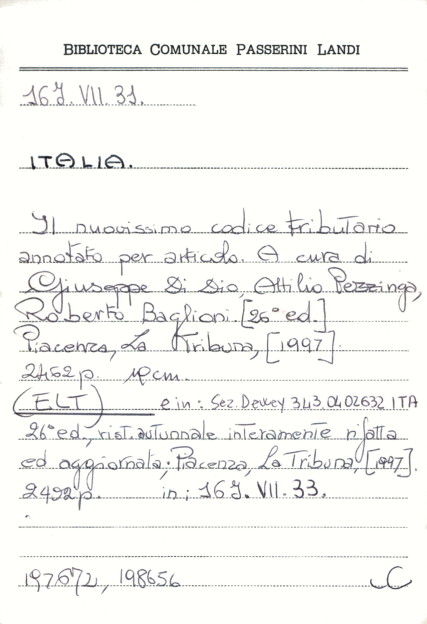 BIBLIOTECA COMUNALE PASSERINI LANDI
16J. VII. 31.
ITALIA.
Il nuovissimo codice tributario
annotato per articolo. A cura di
Giuseppe Di Dio, Attilio Pezzinga,
Roberto Baglioni. [26ª ed.]
Piacenza, La Tribuna, [1997].
2462 p. cm.
(ELT) e in: Sez. Dewey 343.0402632 ITA
26ª ed., rist. autunnale interamente rifatta
ed aggiornata; Piacenza, La Tribuna, [1997].
2492 p. in; 16J. VII. 33.
197672, 198656